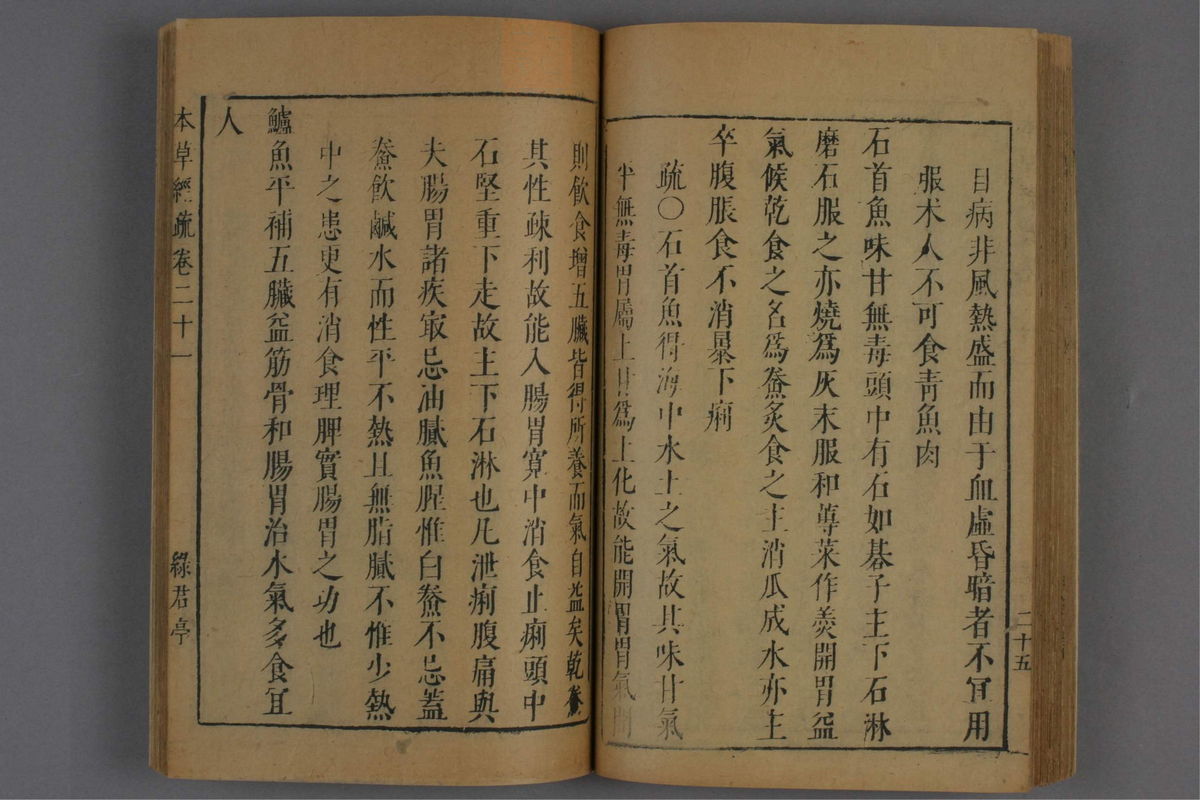 二十五
目病非風熱盛而由于血虛昏暗者不宜用
服术人不可食青魚肉
石首魚味甘無毒頭中有石如棊子主下石淋
磨石服之亦燒為灰末服和蓴菜作羮開胃益
氣候乾食之名為鯗炙食之主消瓜成水亦主
卒腹脹食不消暴下痢
疏〇石首魚得海中水土之氣故其味甘氣
平無毒胃屬土甘為土化故能開胃胃氣開
則飲食增五臟皆得所養而氣自益矣乾鯗
其性疎利故能入腸胃寬中消食止痢頭中
石堅重下走故主下石淋也凡泄痢腹痛與
夫腸胃諸疾㝡忌油膩魚腥惟白鯗不忌蓋
鯗飲鹹水而性平不熱且無脂膩不惟少熱
中之患更有消食理脾實腸胃之功也
鱸魚平補五臟益筋骨和腸胃治水氣多食宜
人
本草經疏卷二十一 綠君亭